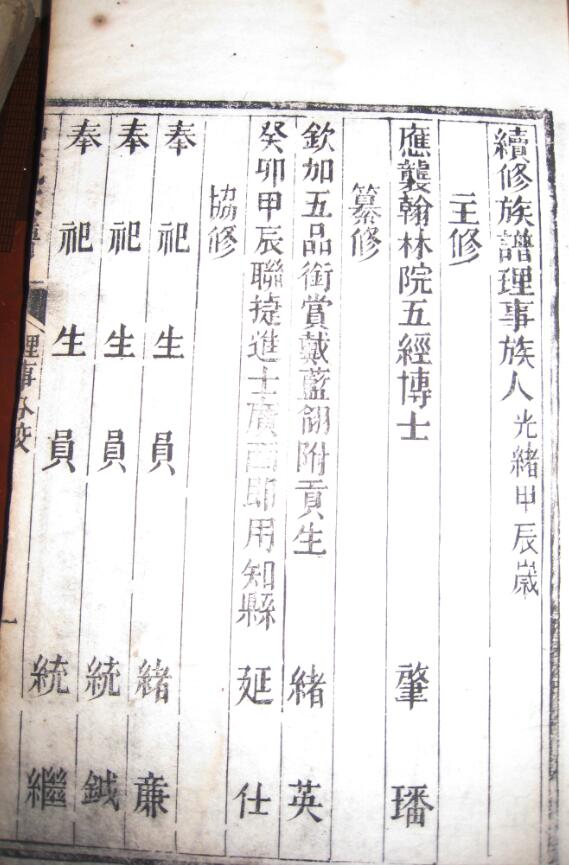 續修族譜理事族人 光緒甲辰歲
主修
應襲翰林院五經博士 肇璠
纂修
欽加五品銜賞戴藍翎附貢生 緒英
癸卯甲辰聯捷進士廣西即用知縣 延仕
協修
奉祀生員 緒廉
奉祀生員 統鉞
奉祀生員 統繼
理事
一